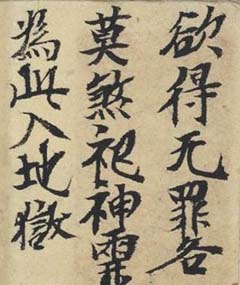 欲得无罪各
莫煞祀神
為此入地獄